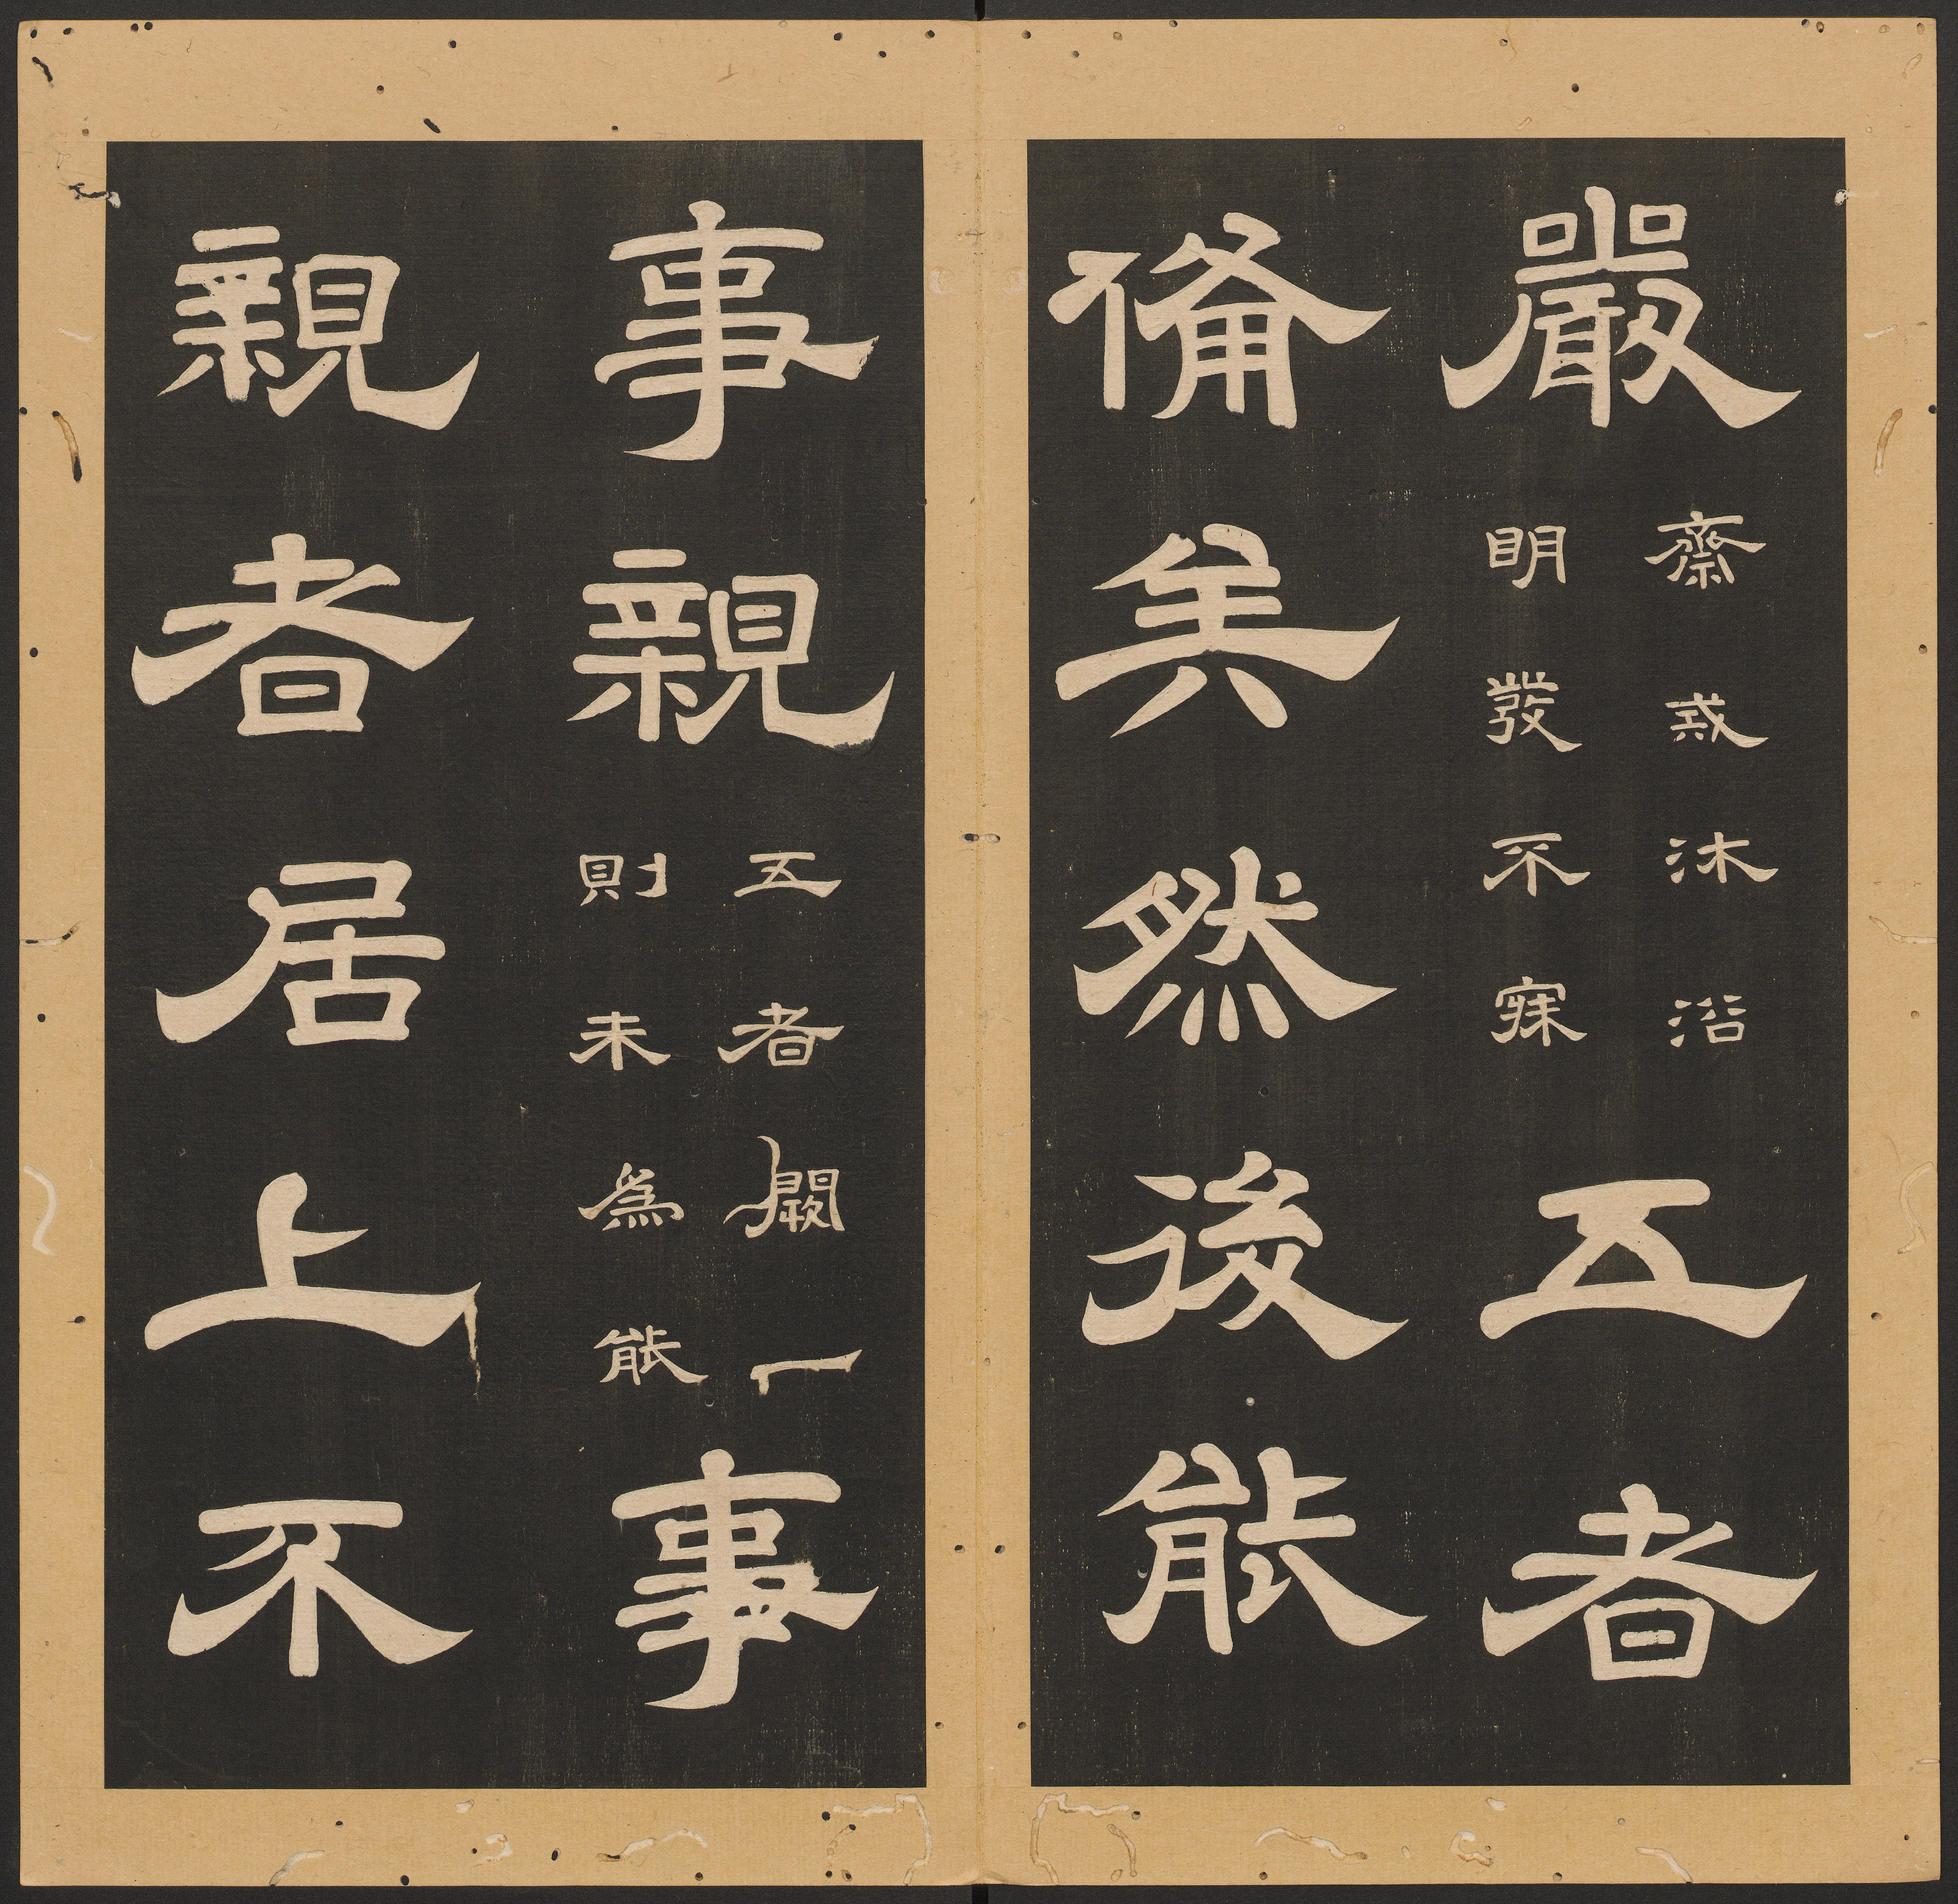 嚴
齋戒沐浴
明發不寐
五者
備矣然後能
事親
五者闕一
則未爲能
事
親者居上不